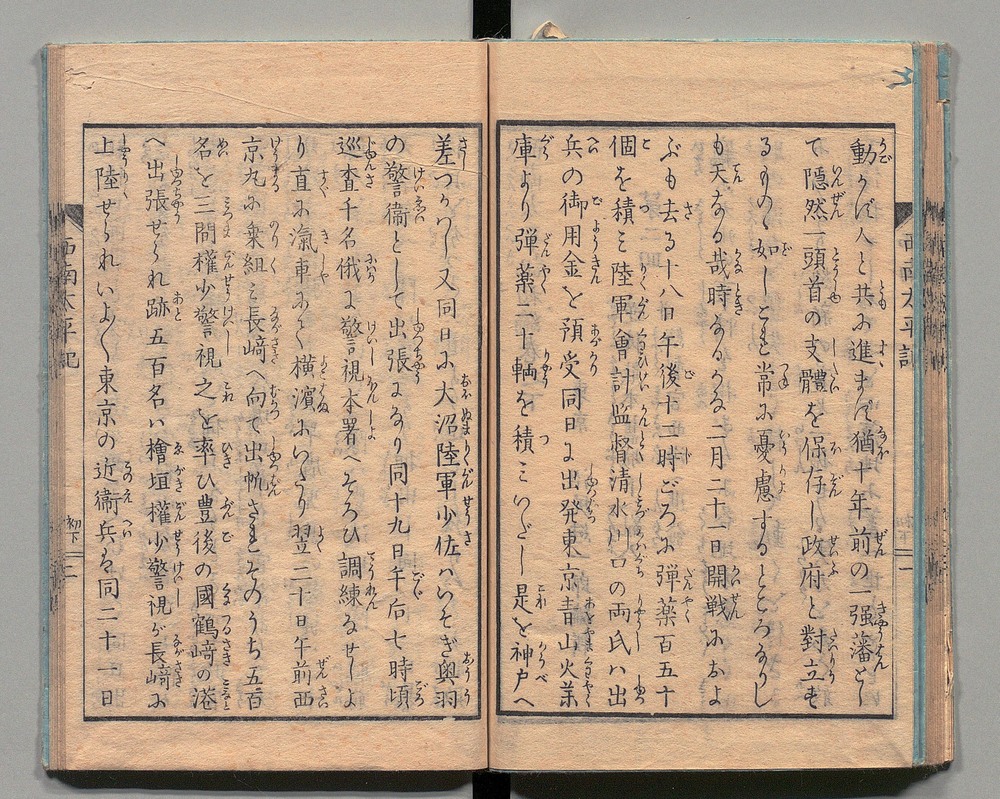 動かば人と共に進まば猶十年前の一强藩とし
て隠然一頭首の支體を保存し政府と對立も
るものゝ如しこれ常に憂慮するところなりし
も天なる哉時なるかな二月二十一日開戦におよ
ぶも去る十八日午後十二時ごろに弾薬百五十
個を積ミ陸軍會計監督清水川口の両氏ハ出
兵の御用金を預受同日に出発東京青山火薬
庫より弾薬二十輌を積ミいだし是を神戸へ
差つかハし又同日に大沼陸軍少佐ハいそぎ奥羽
の警衞として出張になり同十九日午后七時頃
巡査千名俄に警視本署へそろひ調練なせしよ
り直に滊車にて横濵にいたり翌二十日午前西
京丸に乗組ミ長﨑へ向て出帆さるそのうち五百
名を三間權少警視之を率ひ豊後の國鶴﨑の港
へ出張せられ跡五百名ハ檜垣權少警視が長﨑に
上陸せられいよ〱東京の近衞兵も同二十一日
西南太平記
初下
二